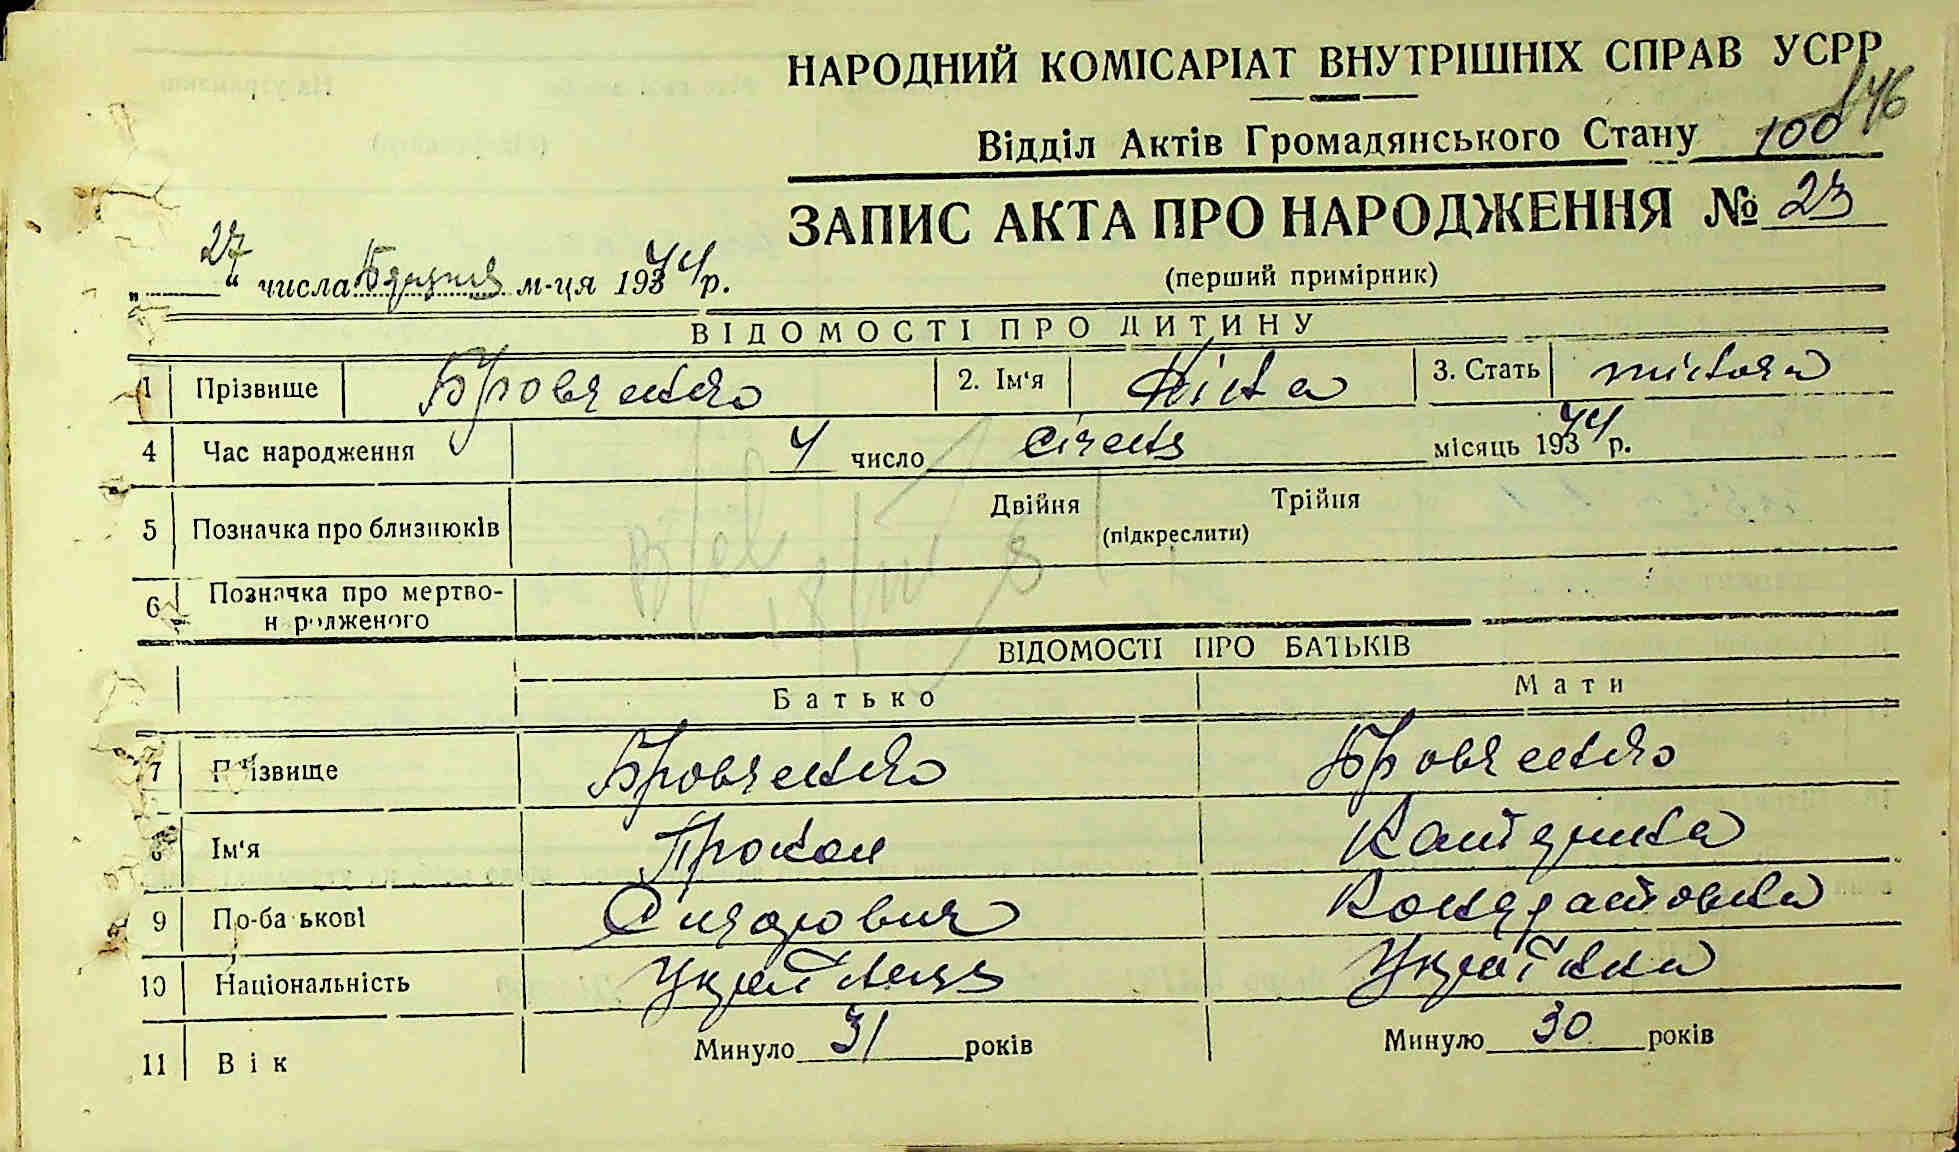 НАРОДНИЙ КОМІСАРІАТ ВНУТРІШНІХ СПРАВ УСРР
146
Відділ Актів Громадянського Стану 100
ЗАПИС АКТА ПРО НАРОДЖЕННЯ № 23
(перший примірник)
„27“ числа Березня м-ця 1944 р.
ВІДОМОСТІ ПРО ДИТИНУ
1 Прізвище Бровченко 2. Ім'я Ніна 3. Стать жіноча
4 Час народження 4 число Січень місяць 1944 р.
5 Позначка про близнюків Двійня Трійня
(підкреслити)
6 Позначка про мертво-
н родженого
ВІДОМОСТІ ПРО БАТЬКІВ
Батько Мати
7 Прізвище Бровченко Бровченко
8 Ім'я Прокоп Катерина
9 По-ба ькові Сидорович Кондратовна
10 Національність Українець Українка
11 Вік Минуло 31 років Минуло 30 років